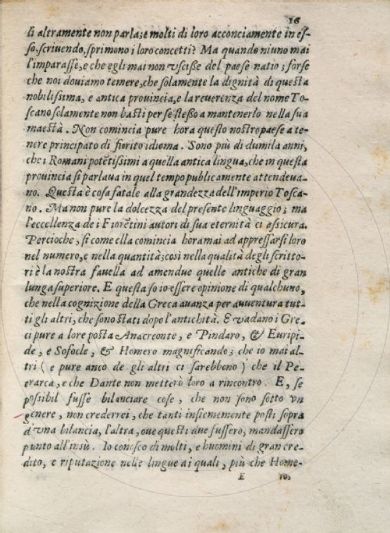 16
li altramente non parla; e molti di loro acconciamente in es-
so, scriuendo, sprimono i loro concetti? Ma quando niuno mai
l'imparasse, e che egli mai non vscisse del paese natio; forse
che noi douiamo temere, che solamente la dignità di questa
nobilissima, e antica prouincia, e la reuerenza del nome To-
scano solamente non basti per se stesso a mantenerlo nella sua
maestà. Non comincia pure hora questo nostro paese a te-
nere principato di fiorito idioma. Sono più di dumila anni,
che i Romani potẽtissimi a quella antica lingua, che in questa
prouincia si parlaua in quel tempo publicamente attendeua-
no. Questa è cosa fatale alla grandezza dell'imperio Tosca-
no. Ma non pure la dolcezza del presente linguaggio; ma
l'eccellenza de i Fiorẽtini autori di sua eternità ci assicura.
Percioche, sì come ella comincia horamai ad appressarsi loro
nel numero, e nella quantità; così nella qualità degli scritto-
ri è la nostra fauella ad amendue quelle antiche di gran
lunga superiore. E questa so io essere opinione di qualchuno,
che nella cognizione della Greca auanza per auuentura tut-
ti gli altri, che sono stati dopo l'antichità. E vadano i Gre-
ci pure a lor posta Anacreonte, e Pindaro, & Euripi-
de, e Sofocle, & Homero magnificando; che io mai al-
tri (e pure anco de gli altri ci sarebbono) che il Pe-
trarca, e che Dante non metterò loro a rincontro. E, se
possibil fusse bilanciare cose, che non sono sotto vn
genere, non crederei, che tanti insiememente posti sopra
d'vna bilancia, l'altra, oue questi due fussero, mandassero
punto all'insù. Io conosco di molti, e huomini di gran cre-
dito, e riputazione nelle lingue ai quali, più che Home-
E ro,